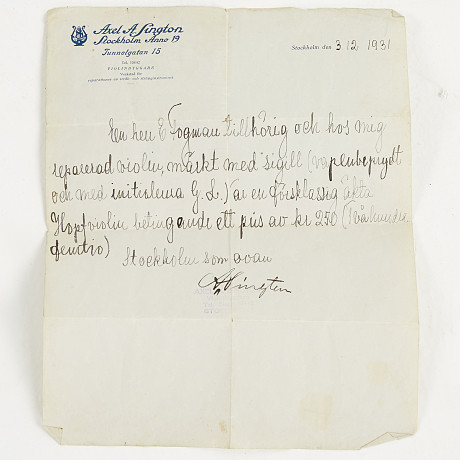 Axel A. Sington
Stockholm Anno 19
Tunnelgatan 15
VIOLINBYGGARE
Verkstad för
Stockholm den 3 12 1931
En herr E Fogman tillhörig och hos mig
reparerad violin, märkt med "sigill (vapenbeprydt
och med initialerna G. L.) är en förstklassig äkta
Hopfviolin betingande ett pris av kr 250 (Tvåhundra
femtio)
Stockholm som ovan
A Sington